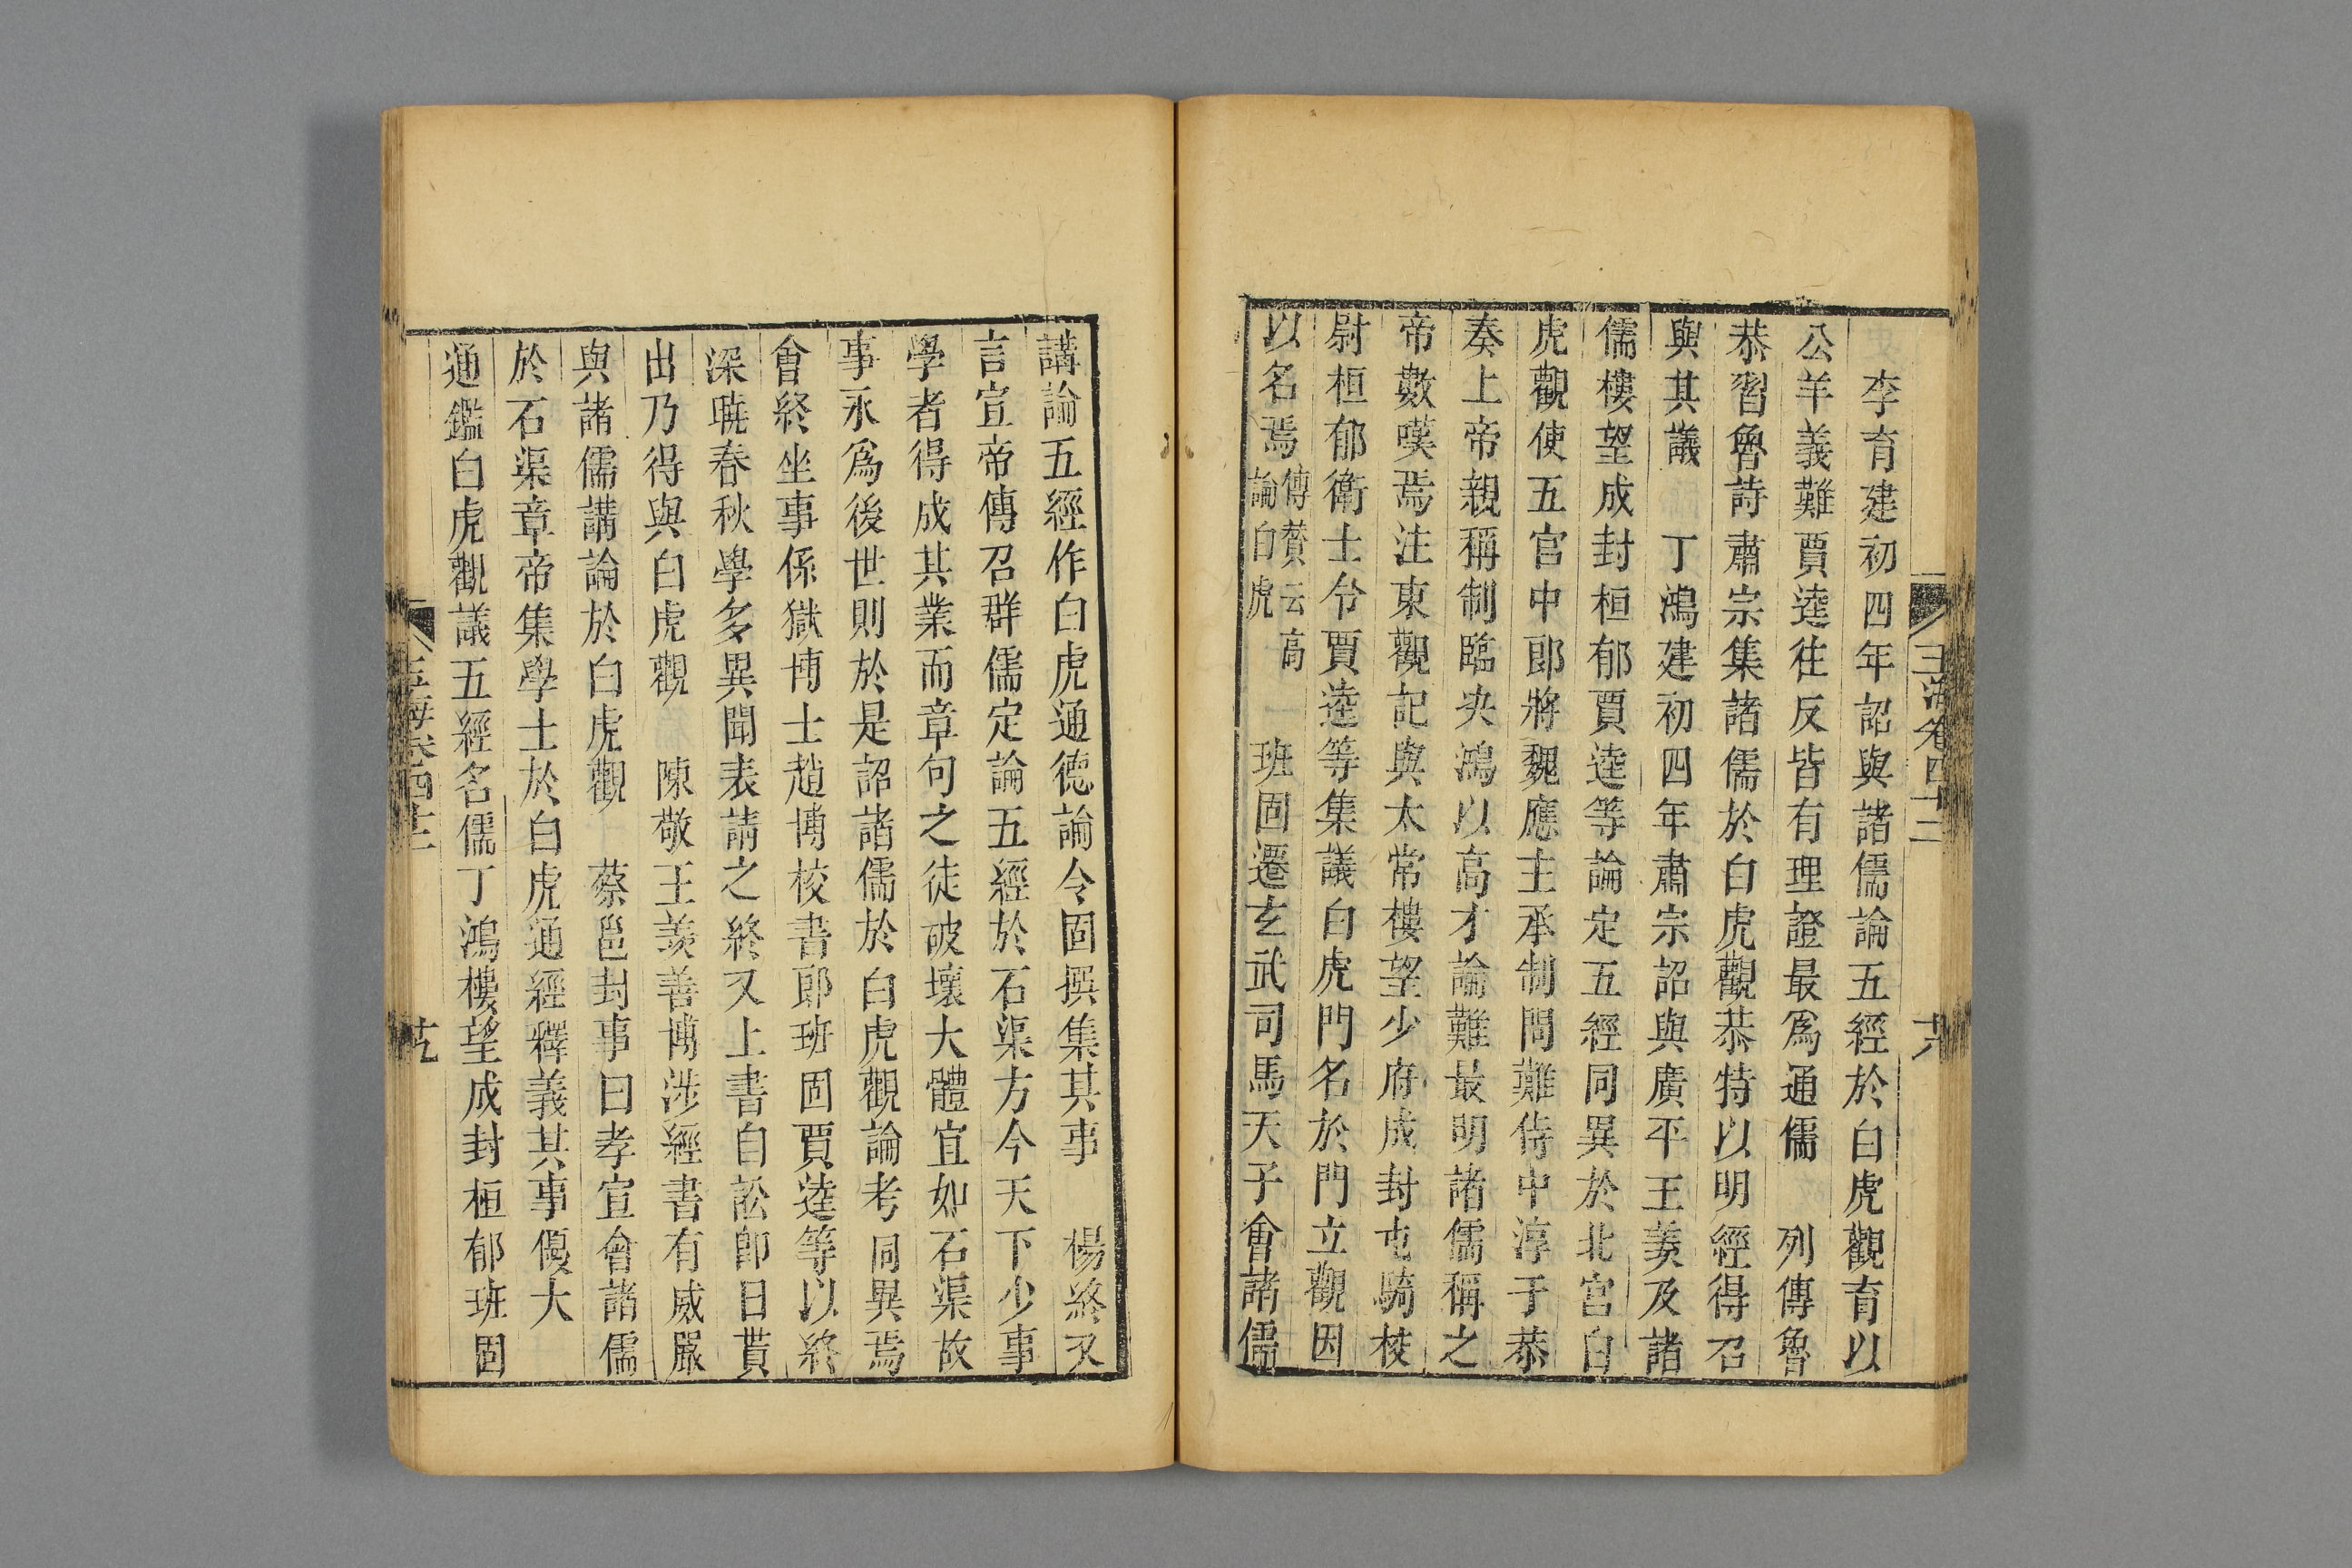 李育建初四年詔與諸儒論五經於白虎觀育以
公羊義難賈逵往反皆有理證最爲通儒　列傳魯
恭習魯詩肅宗集諸儒於白虎觀恭特以明經得召
與其議　丁鴻建初四年肅宗詔與廣平王羨及諸
儒樓望成封桓郁賈逵等論定五經同異於北宮白
虎觀使五官中郎將魏應主承制問難侍中淳于恭
奏上帝親稱制臨決鴻以高才論難最明諸儒稱之
帝數嘆焉注東觀記與太常樓望少府成封屯騎校
尉桓郁衛士令賈逵等集議白虎門名於門立觀因
以名焉傳贊云高論白虎　班固遷玄武司馬天子會諸儒
講論五經作白虎通德論令固撰集其事　楊終又
言宣帝博召群儒定論五經於石渠方今天下少事
學者得成其業而章句之徒破壞大體宜如石渠故
事永爲後世則於是詔諸儒於白虎觀論考同異焉
會終坐事係獄博士趙博校書郎班固賈逵等以終
深曉春秋學多異聞表請之終又上書自訟即日貰
出乃得與白虎觀　陳敬王羨善博涉經書有威嚴
與諸儒講論於白虎觀　蔡邕封事曰孝宣會諸儒
於石渠章帝集學士於白虎通經釋義其事優大
通鑑白虎觀議五經名儒丁鴻樓望成封桓郁班固
玉海卷四十二